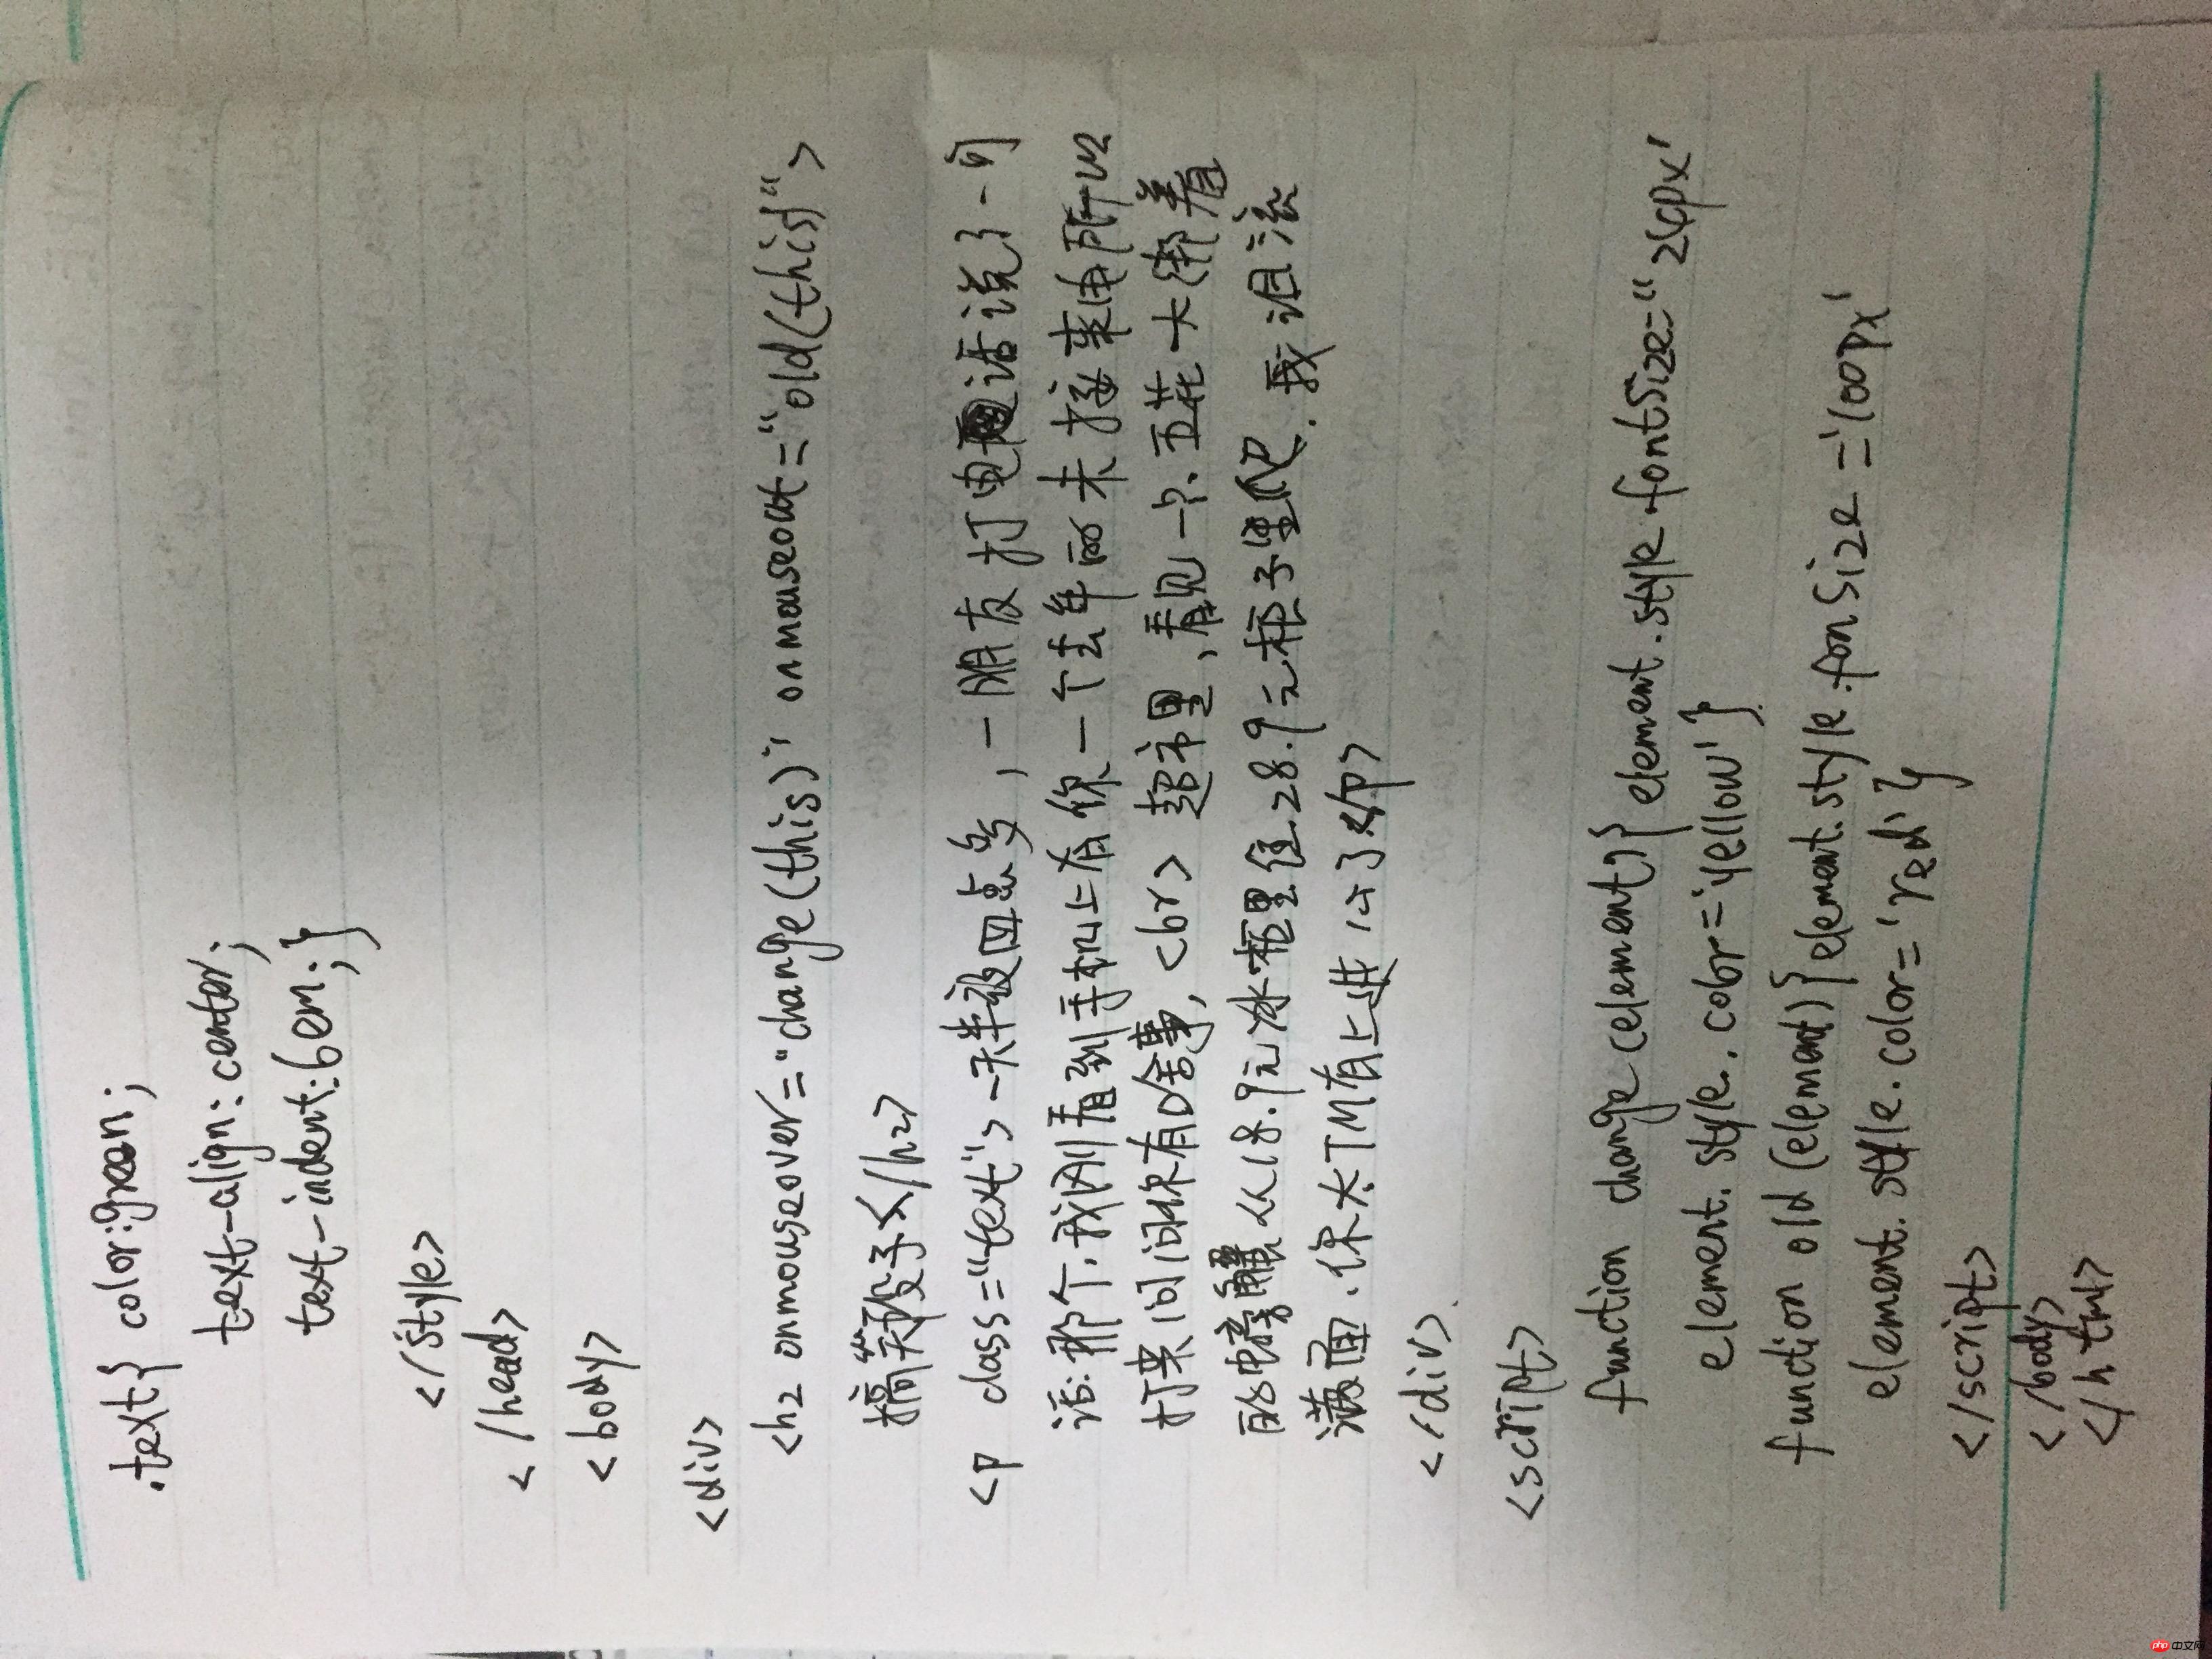 .text{ color:green;
text-align:center;
text-indent:6em;}
</style>
</head>
<body>
<div>
<h2 onmouseover="change(this)" onmouseout="old(this)">
搞笑段子</h2>
<p class="text">一天半夜四点多,一朋友打电话说了一句
话:那个,我刚看到手机上有你一个去年的未接来电所以
打来问问你有啥事,<br> 超市里,看见一只五花大绑着
的螃蟹从18.9元冰柜里往28.9元柜子里爬.我泪流
满面.你太TM有上进心了</p>
</div>
<script>
function change(element){ element.style.fontSize="24px'
element.style.color='yellow'}
function old(element){element.style.fonSize='100px'
element.style.color='red'}
</script>
</body>
</html>
php 中文网